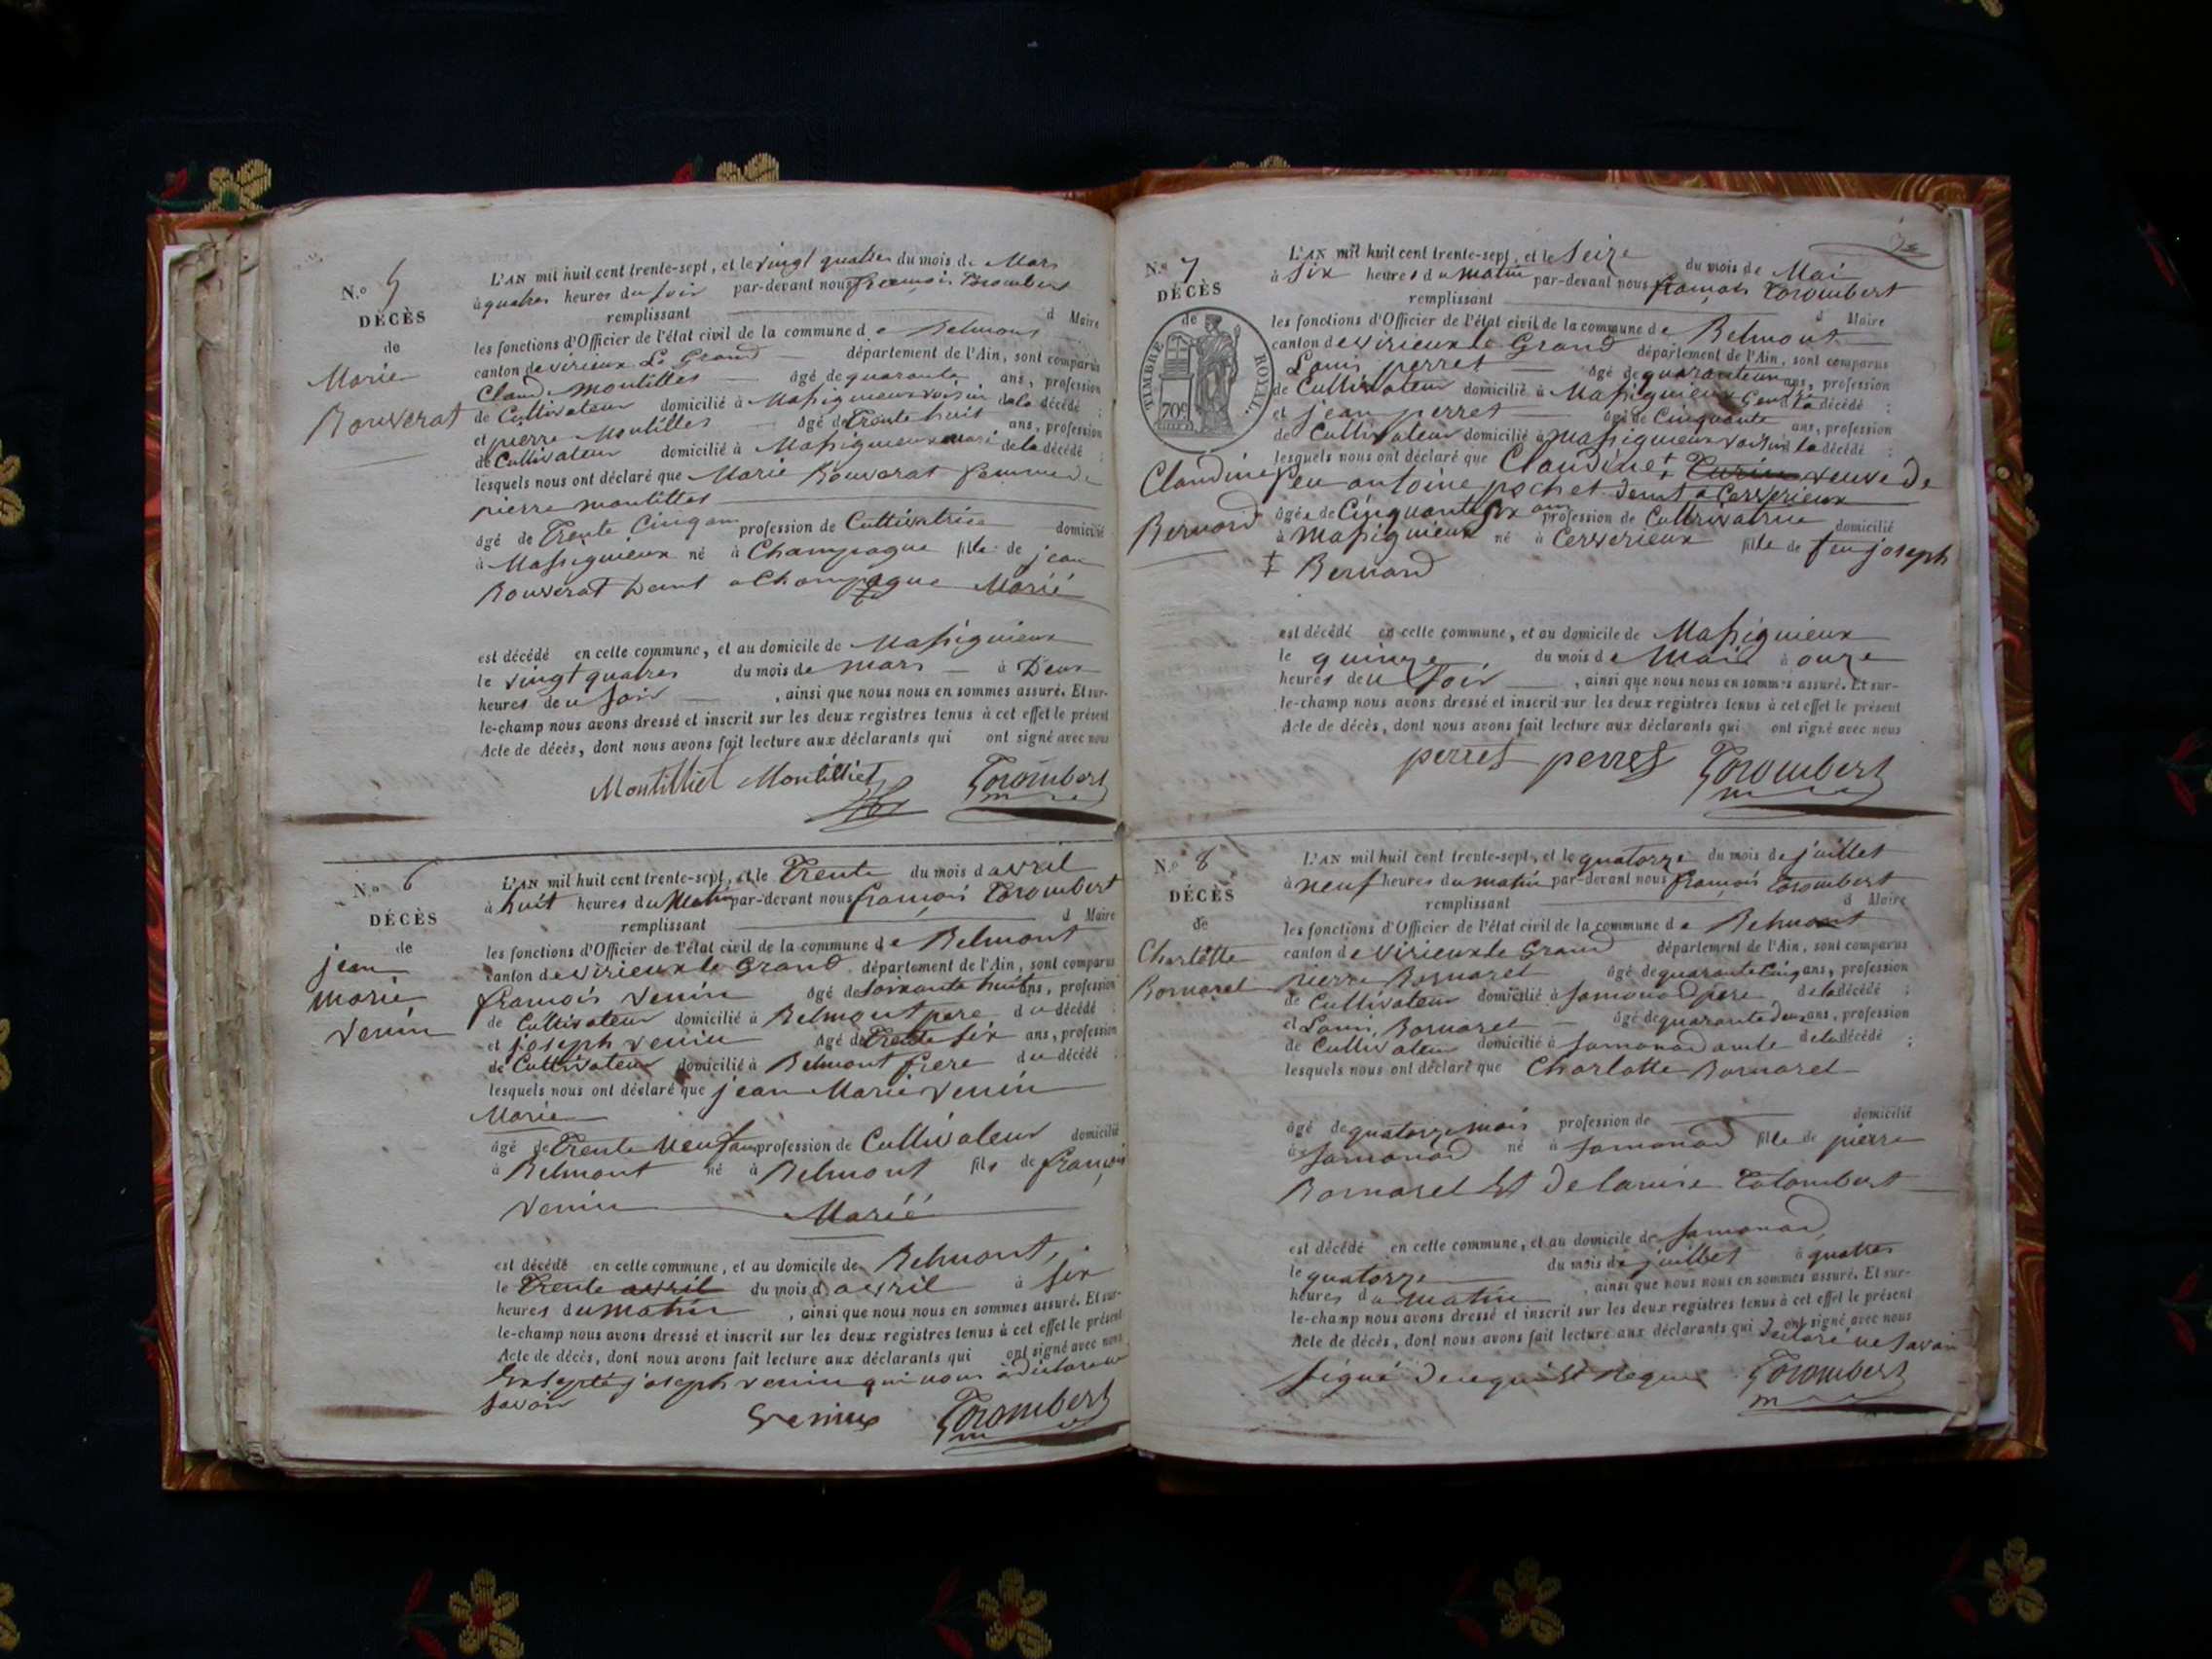 N.o 5
DÉCÈS
de
Marie
Bouverat
L'AN mil huit cent trente-sept, et le vingt quatre du mois de Mars
à quatres heures du soir par-devant nous françois Torombert
remplissant d Maire
les fonctions d'Officier de l'état civil de la commune de Belmont
canton de virieux Le Grand département de l'Ain, sont comparus
Claude Montillet âgé de quarante ans, profession
de Cultivateur domicilié à Massignieux voisin de la décédé ;
et pierre Montillet âgé de Trente huit ans, profession
de Cultivateur domicilié à Massignieux mari de la décédé ;
lesquels nous ont déclaré que Marie Bouverat femme de
pierre montillet
âgé de Trente Cinq ans profession de Cultivatrice domicilié
à Massignieux né à Champagne fille de jean
Bouverat a Champagne Marié
est décédé en cette commune, et au domicile de Massignieux
le vingt quatres du mois de mars à Deux
heures de u soir , ainsi que nous nous en sommes assuré. Et sur-
le-champ nous avons dressé et inscrit sur les deux registres tenus à cet effet le présent
Acte de décès, dont nous avons fait lecture aux déclarants qui ont signé avec nous
Montilliet Montilliet Torombert
N.o 6
DÉCÈS
de
jean
marie
venin
L'AN mil huit cent trente-sept, et le Trente du mois d avril
à huit heures du Matin par-devant nous françois Torombert
remplissant d Maire
les fonctions d'Officier de l'état civil de la commune de Belmont
canton de virieux le Grand département de l'Ain, sont comparus
françois venin âgé de soixante huit ans, profession
de Cultivateur domicilié à Belmont pere du décédé
et joseph venin âgé de Trente six ans, profession
de Cultivateur domicilié à Belmont frere du décédé
lesquels nous ont déclaré que jean Marie venin
Marié
âgé de Trente Neuf ans profession de Cultivateur domicilié
à Belmont né à Belmont fils de françois
venin Marié
est décédé en cette commune, et au domicile de Belmont,
le Trente avril du mois d avril à six
heures du matin , ainsi que nous nous en sommes assuré. Et sur-
le-champ nous avons dressé et inscrit sur les deux registres tenus à cet effet le présent
Acte de décès, dont nous avons fait lecture aux déclarants qui ont signé avec nous
joseph venin qui nous a déclaré ne
savoir
Torombert
N.o 7
DÉCÈS
de
TIMBRE ROYAL.
70c
Claudine
Bernard
L'AN mil huit cent trente-sept, et le seize du mois de Mai
à six heures du matin par-devant nous françois Torombert
remplissant d Maire
les fonctions d'Officier de l'état civil de la commune de Belmont
canton de virieux le Grand département de l'Ain, sont comparus
Louis perret âgé de quarante un ans, profession
de Cultivateur domicilié à Massignieux la décédé ;
et jean perret âgé de Cinquante ans, profession
de Cultivateur domicilié à Massignieux voisin la décédé ;
lesquels nous ont déclaré que Claudine ‡ veuve de
feu antoine pochet a Cerverieux
âgée de Cinquante six ans profession de Cultivatrice domicilié
à Massignieux né à Cerverieux fille de feu joseph
‡ Bernard
est décédé en cette commune, et au domicile de Massignieux
le quinze du mois de Mai à onze
heures de u soir , ainsi que nous nous en sommes assuré. Et sur-
le-champ nous avons dressé et inscrit sur les deux registres tenus à cet effet le présent
Acte de décès, dont nous avons fait lecture aux déclarants qui ont signé avec nous
perret perret Torombert
N.o 8
DÉCÈS
de
Charlotte
Bornarel
L'AN mil huit cent trente-sept, et le quatorze du mois de juillet
à neuf heures du matin par-devant nous françois Torombert
remplissant d Maire
les fonctions d'Officier de l'état civil de la commune de Belmont
canton de virieux le Grand département de l'Ain, sont comparus
pierre Bornarel âgé de quarante Cinq ans, profession
de Cultivateur domicilié à samonod pere de la décédé ;
et Louis Bornarel âgé de quarante deux ans, profession
de Cultivateur domicilié à samonod oncle de la décédé ;
lesquels nous ont déclaré que Charlotte Bornarel
âgé de quatorze mois profession de domicilié
à samonod né à samonod fille de pierre
Bornarel Et De Torombert
est décédé en cette commune, et au domicile de samonod
le quatorze du mois de juillet à quatres
heures du matin , ainsi que nous nous en sommes assuré. Et sur-
le-champ nous avons dressé et inscrit sur les deux registres tenus à cet effet le présent
Acte de décès, dont nous avons fait lecture aux déclarants qui ont signé avec nous
déclaré ne savoir
signé De Torombert